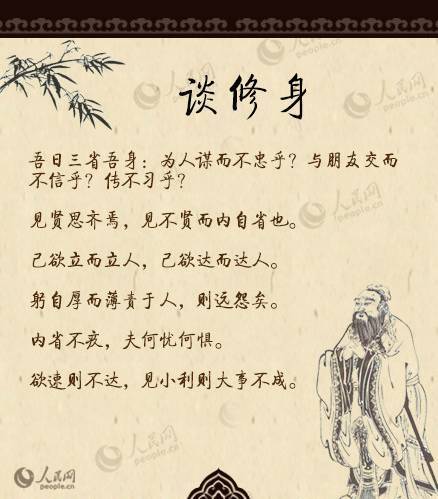 谈修身
吾日三省吾身：为人谋而不忠乎？与朋友交而
不信乎？传不习乎？
见贤思齐焉，见不贤而内自省也。
己欲立而立人，己欲达而达人。
躬自厚而薄责于人，则远怨矣。
内省不疚，夫何忧何惧。
欲速则不达，见小利则大事不成。
人民网
people.cn
人民网
people.cn
人民网
people.cn
人民网
people.cn
人民网
people.cn